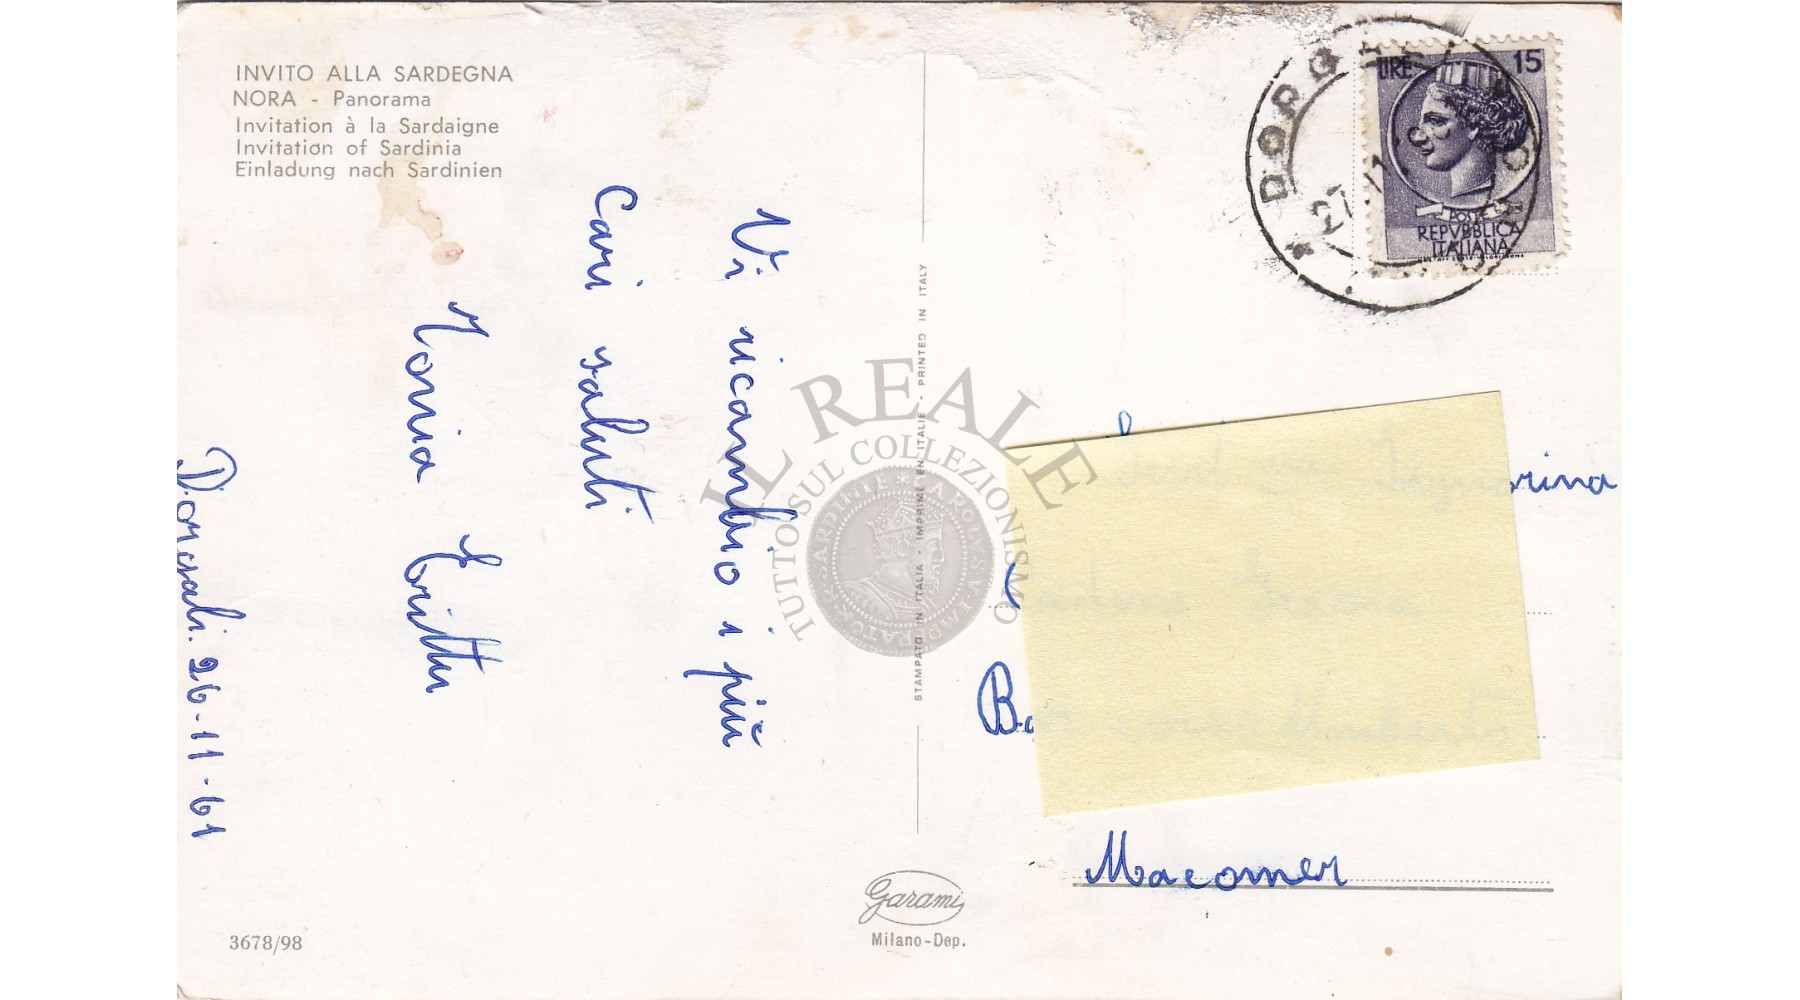 INVITO ALLA SARDEGNA
NORA - Panorama
Invitation à la Sardaigne
Invitation of Sardinia
Einladung nach Sardinien
Vi ricambio i più
Cari saluti
Dorgali. 26-11-61
3678/98
STAMPATO IN ITALIA - IMPRIMÉ EN ITALIE - PRINTED IN ITALY
Garami
Milano-Dep.
LIRE 15
POSTE
REPVBBLICA
ITALIANA
DORGALI
rina
Macomer
IL REALE
TUTTO SUL COLLEZIONISMO